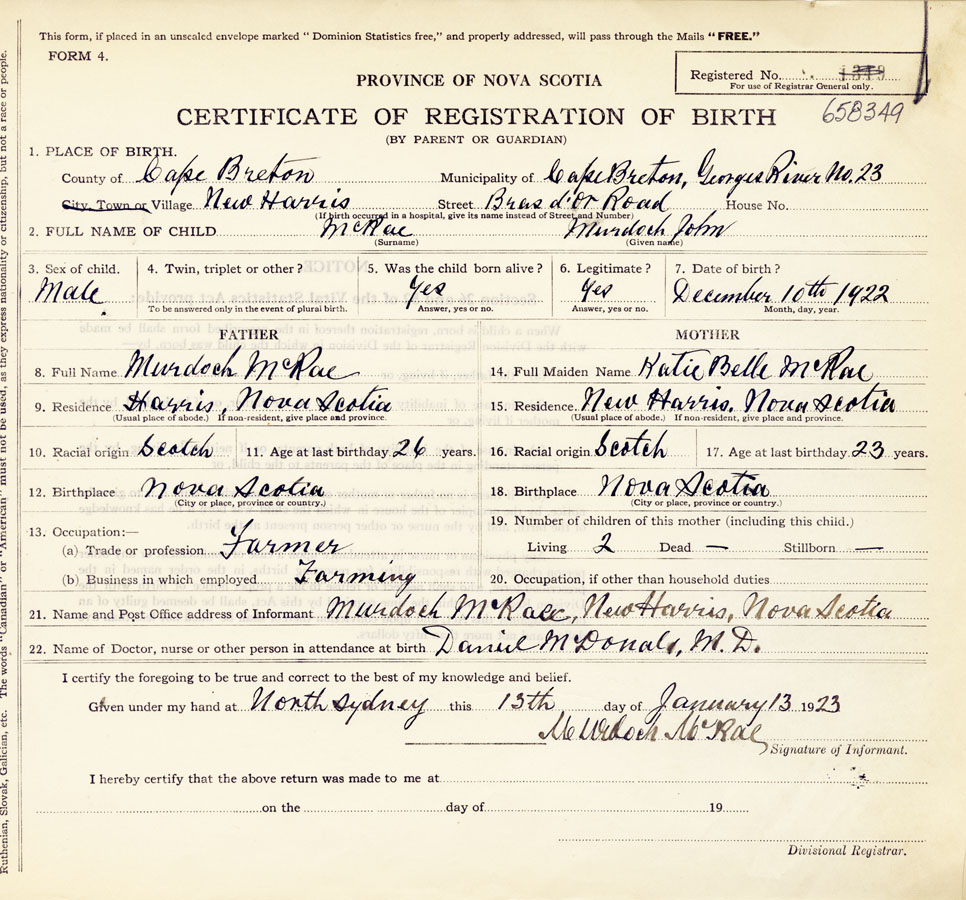 This form, if placed in an unsealed envelope marked “ Dominion Statistics free,” and properly addressed, will pass through the Mails “FREE.”
FORM 4.
Registered No. 1319
For use of Registrar General only.
658349
PROVINCE OF NOVA SCOTIA
CERTIFICATE OF REGISTRATION OF BIRTH
(BY PARENT OR GUARDIAN)
1. PLACE OF BIRTH.
County of Cape Breton Municipality of Cape Breton, Georges River No. 23
City, Town or Village New Harris Street Bras d'Or Road House No.
(If birth occurred in a hospital, give its name instead of Street and Number)
2. FULL NAME OF CHILD McRae Murdoch John
(Surname) (Given name)
3. Sex of child. 4. Twin, triplet or other? 5. Was the child born alive? 6. Legitimate? 7. Date of birth?
Male Yes Yes December 10th 1922
To be answered only in the event of plural birth. Answer, yes or no. Answer, yes or no. Month, day, year.
FATHER MOTHER
8. Full Name Murdoch McRae 14. Full Maiden Name Katie Belle McRae
9. Residence Harris, Nova Scotia 15. Residence New Harris, Nova Scotia
(Usual place of abode.) If non-resident, give place and province. (Usual place of abode.) If non-resident, give place and province.
10. Racial origin Scotch 11. Age at last birthday 26 years. 16. Racial origin Scotch 17. Age at last birthday 23 years.
12. Birthplace Nova Scotia 18. Birthplace Nova Scotia
(City or place, province or country.) (City or place, province or country.)
13. Occupation:— 19. Number of children of this mother (including this child.)
(a) Trade or profession Farmer Living 2 Dead — Stillborn —
(b) Business in which employed Farming 20. Occupation, if other than household duties
21. Name and Post Office address of Informant Murdoch McRae, New Harris, Nova Scotia
22. Name of Doctor, nurse or other person in attendance at birth Daniel McDonald, M. D.
I certify the foregoing to be true and correct to the best of my knowledge and belief.
Given under my hand at North Sydney this 13th day of January 13 1923
Murdoch McRae
Signature of Informant.
I hereby certify that the above return was made to me at
on the day of 19
Divisional Registrar.
Ruthenian, Slovak, Galician, etc. The words “Canadian” or “American” must not be used, as they express nationality or citizenship, but not a race or people.